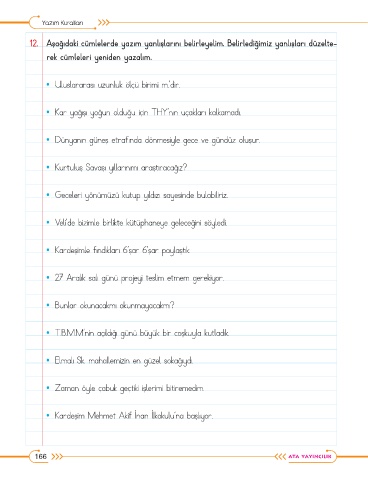 Yazım Kuralları
12. Aşağıdaki cümlelerde yazım yanlışlarını belirleyelim. Belirlediğimiz yanlışları düzelte-
rek cümleleri yeniden yazalım.
• Uluslararası uzunluk ölçü birimi m.'dir.
• Kar yağışı yoğun olduğu için THY'nın uçakları kalkamadı.
• Dünyanın güneş etrafında dönmesiyle gece ve gündüz oluşur.
• Kurtuluş Savaşı yıllarınımı araştıracağız?
• Geceleri yönümüzü kutup yıldızı sayesinde bulabiliriz.
• Veli'de bizimle birlikte kütüphaneye geleceğini söyledi.
• Kardeşimle fındıkları 6'şar 6'şar paylaştık.
• 27 Aralık salı günü projeyi teslim etmem gerekiyor.
• Bunlar okunacakmı okunmayacakmı?
• T.B.M.M'nin açıldığı günü büyük bir coşkuyla kutladık.
• Elmalı Sk. mahallemizin en güzel sokağıydı.
• Zaman öyle çabuk geçtiki işlerimi bitiremedim.
• Kardeşim Mehmet Akif İnan İlkokulu'na başlıyor.
166
ATA YAYINCILIK